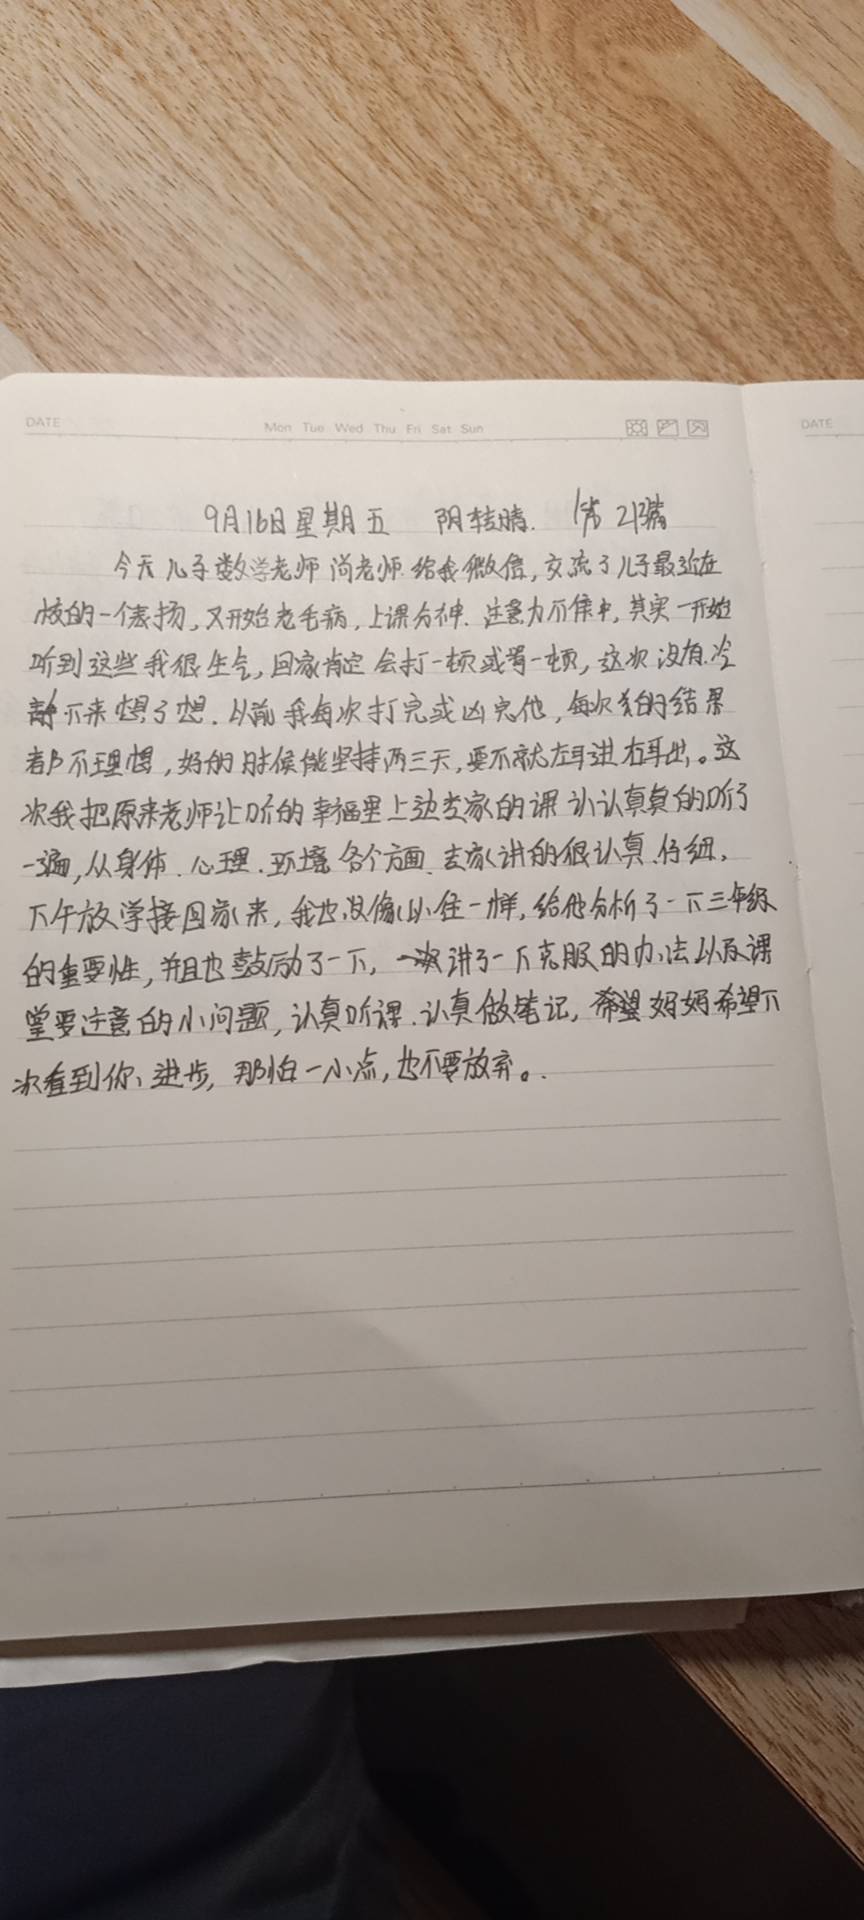 DATE Mon Tue Wed Thu Fri Sat Sun DATE
9月16日星期五 阴转晴. 第21篇
今天儿子数学老师尚老师.给我微信,交流了儿子最近在
校的一个表扬,又开始老毛病,上课分神.注意力不集中,其实一开始
听到这些我很生气,回家肯定会打一顿或骂一顿,这次没有.冷
静下来想了想.以前我每次打完或凶完他,每次的结果
都不理想,好的时候能坚持两三天,要不就左耳进右耳出,。这
次我把原来老师让听的幸福里上边专家的课认认真真的听了
一遍,从身体.心理.环境各个方面.专家讲的很认真.仔细,
下午放学接回家来,我也没像以往一样,给他分析了一下三年级
的重要性,并且也鼓励了一下,一次讲了一下克服的办法以及课
堂要注意的小问题,认真听课.认真做笔记,希望妈妈希望下
次看到你、进步,那怕一小点,也不要放弃。.